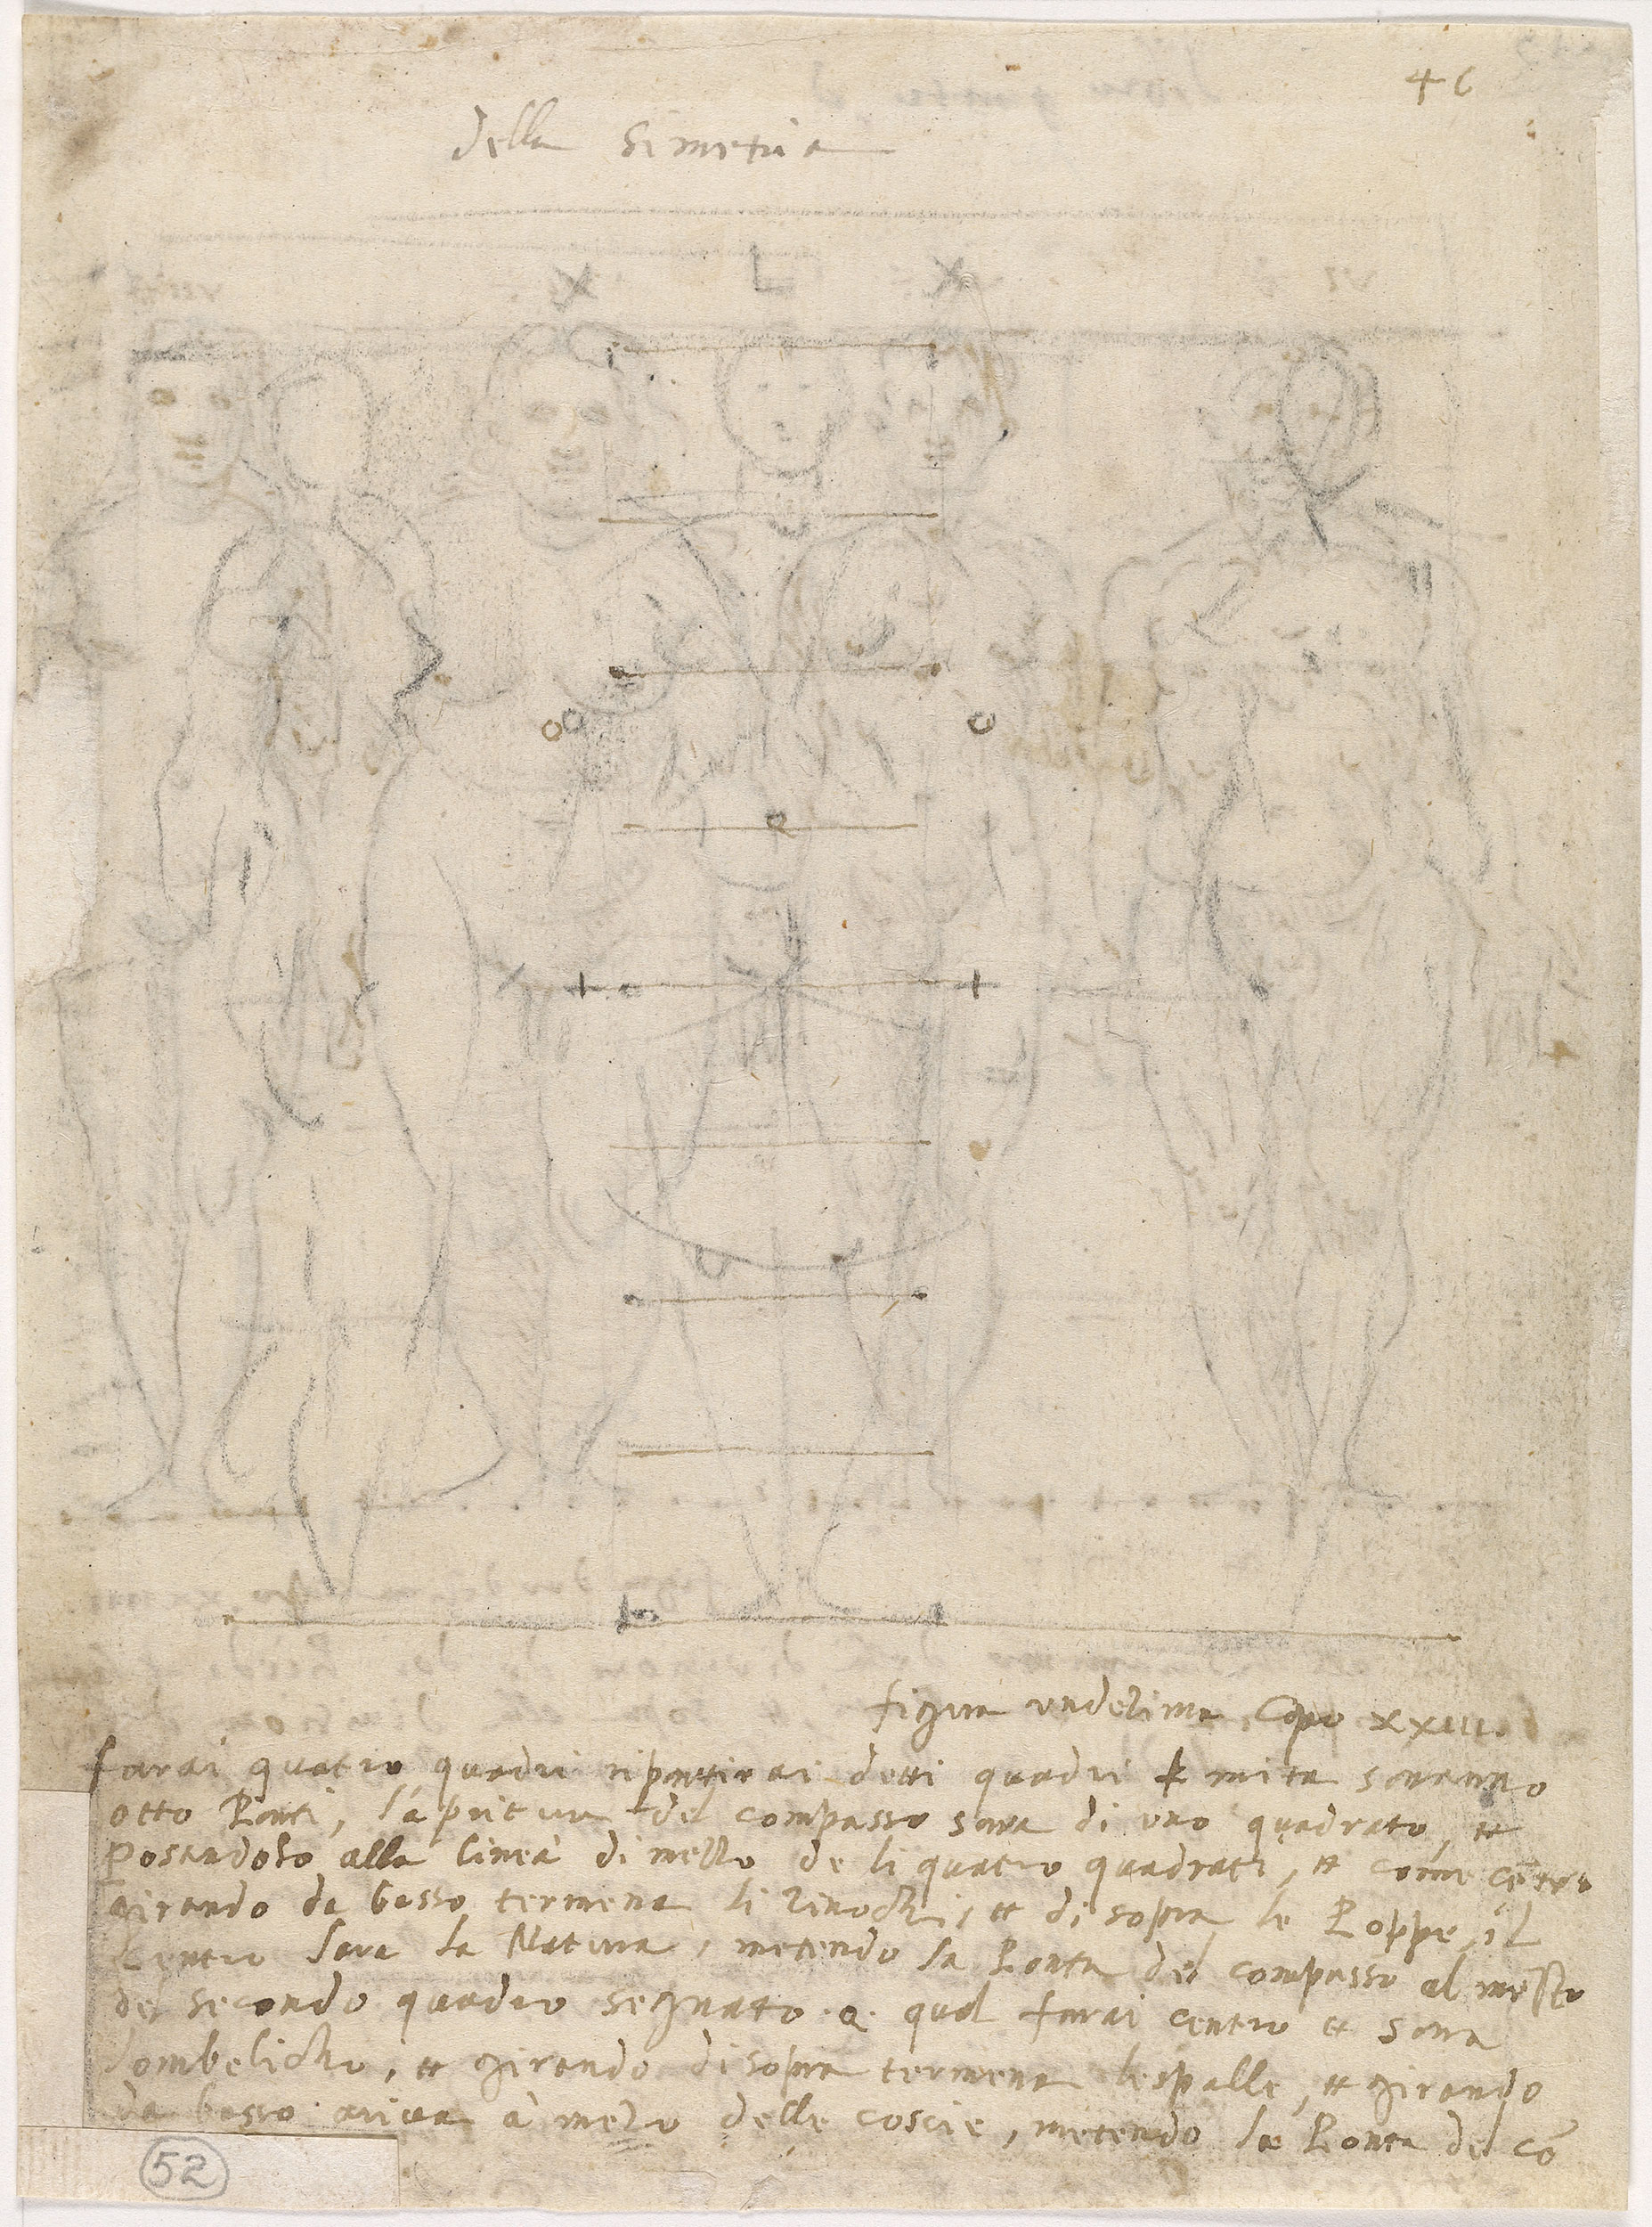 46
della Simetria
X L X
o o
a
figura undecima Capo XXIII.
farai quatro quadri ripartirai detti quadri mita saranno
otto Ponti, la del compasso sara di uno quadrato, et
Posandolo alla linea di mezzo de li quatro quadrati, et come cetro
girando da basso termena li Zinochi, et di sopra le Poppe, il
Centro sara la Natura, metendo la Ponta del compasso al mezzo
del secondo quadro segnato .a. qual farai centro et sara
lombelicho, et girando di sopra termena le spalle, et girando
da basso ariva à mezo delle coscie, metendo la Ponta del cō
52